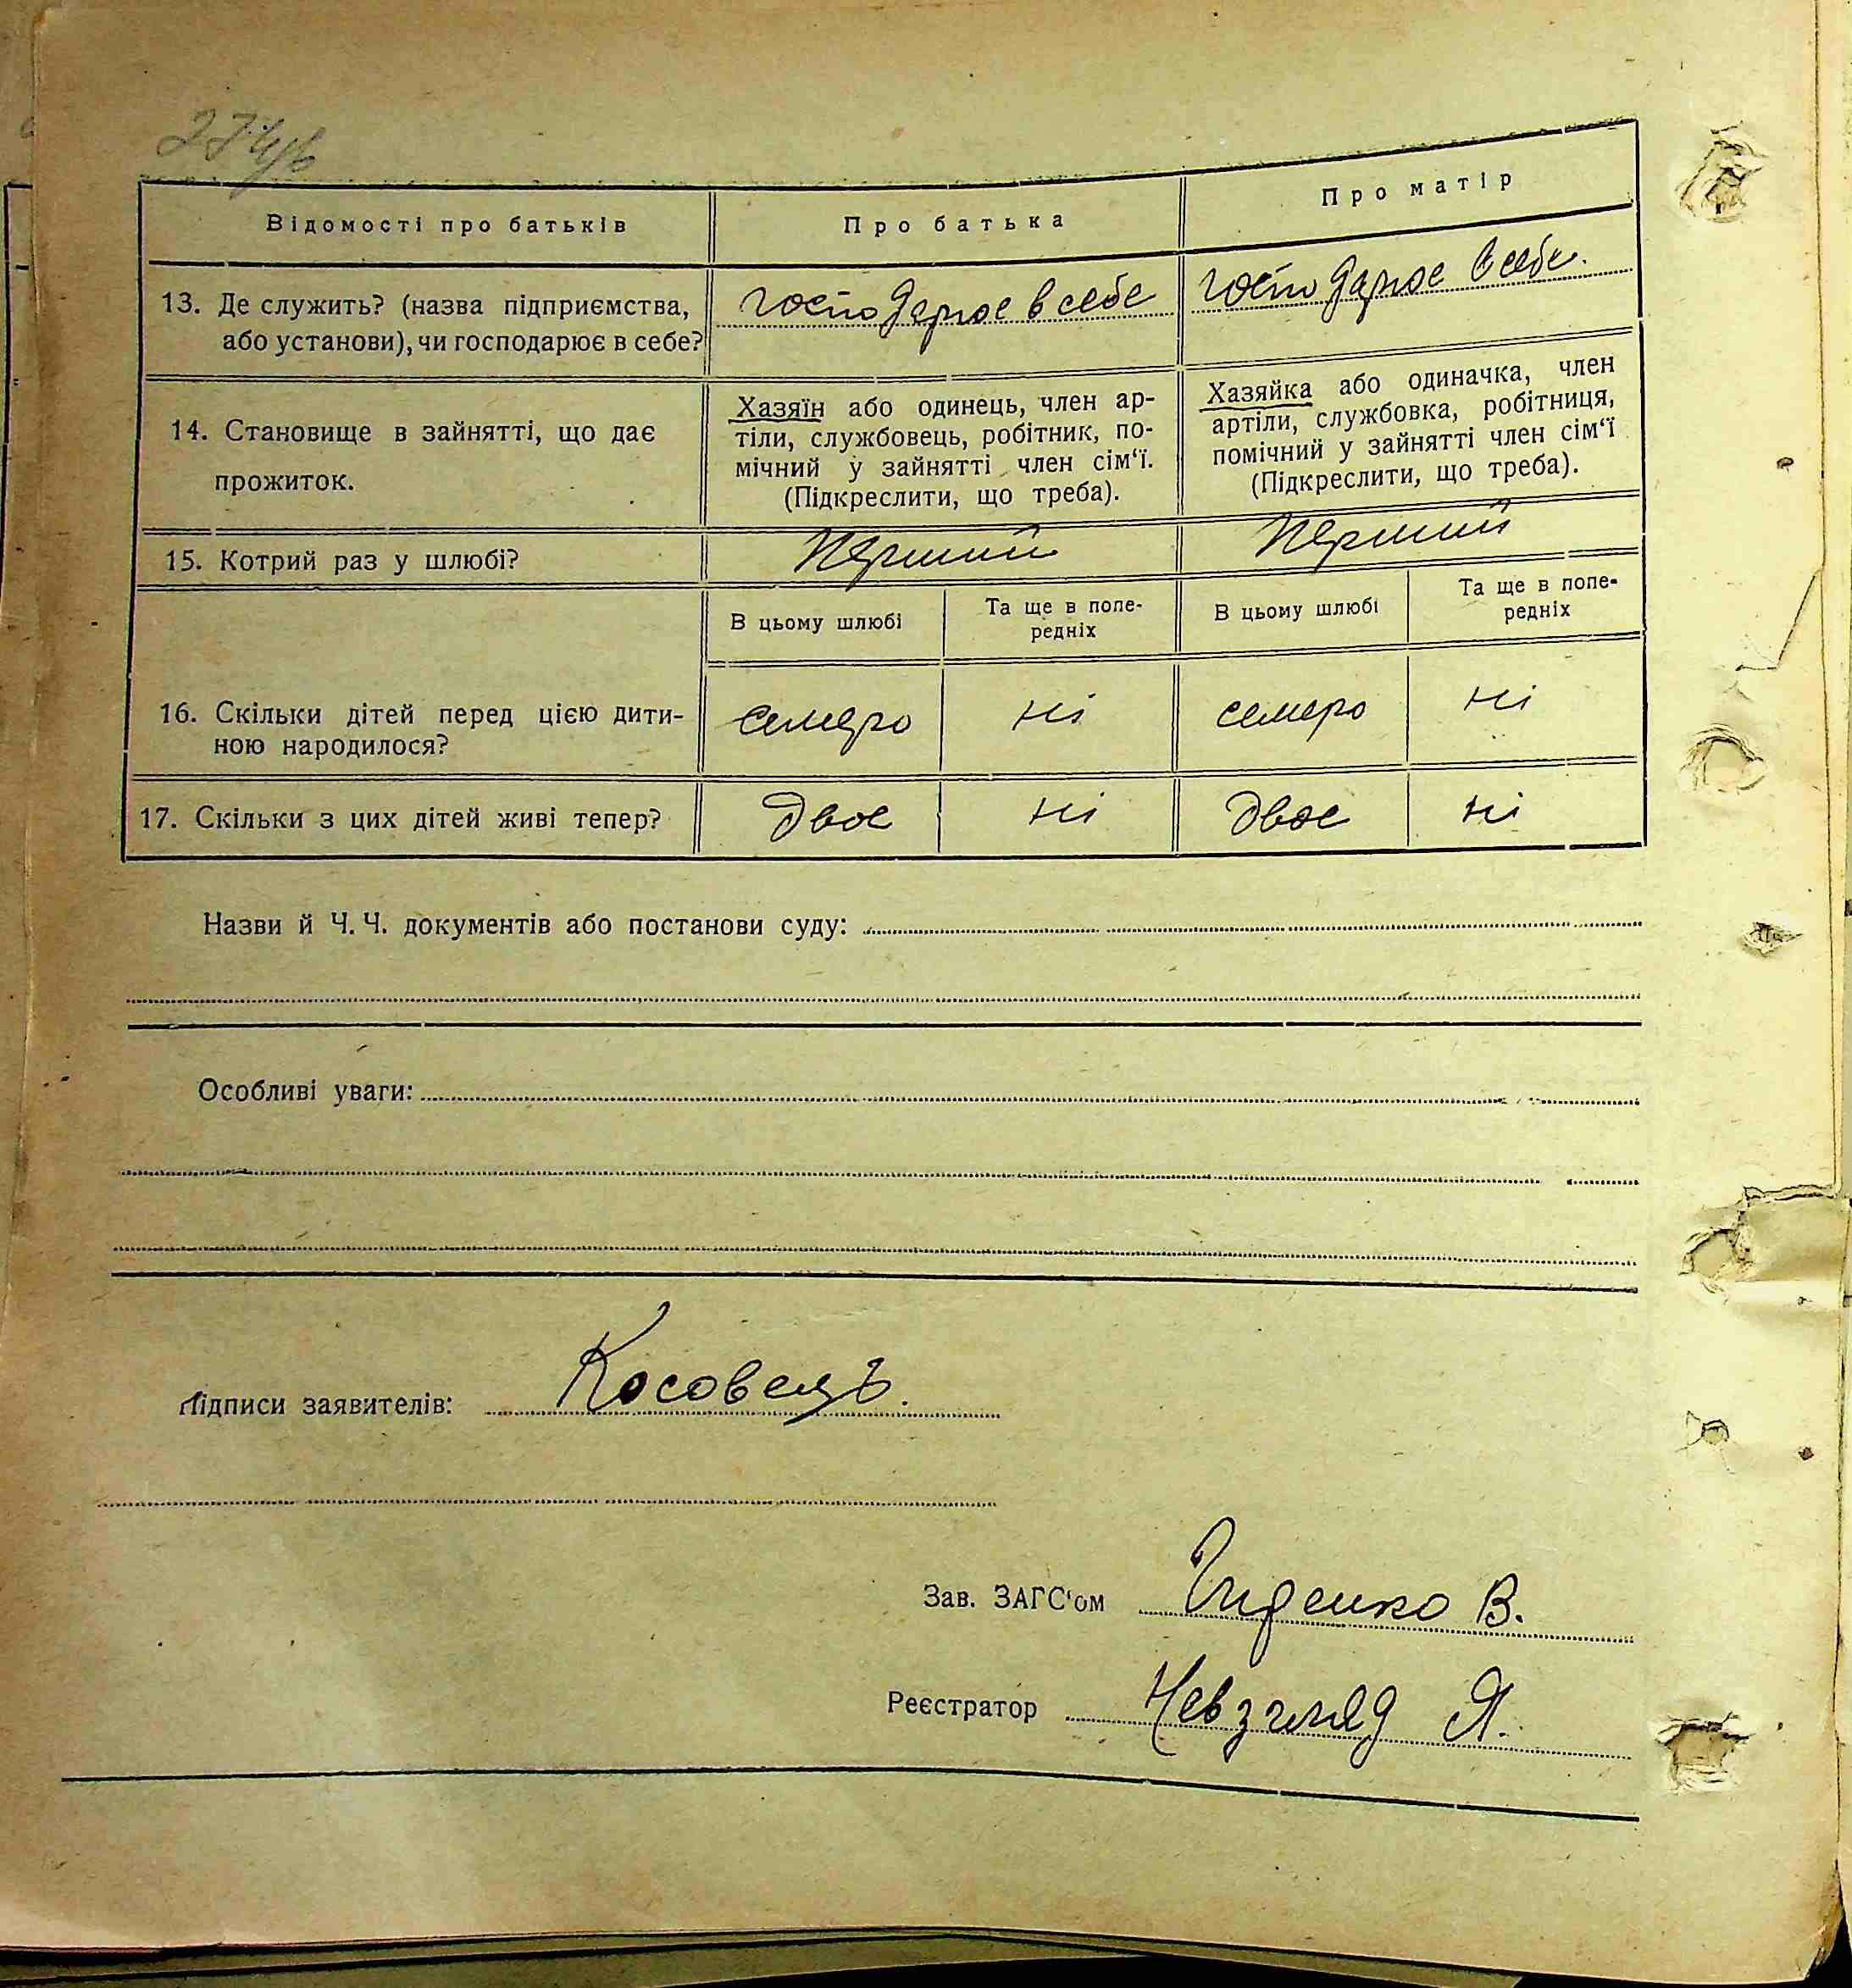 274/в
Відомості про батьків Про батька Про матір
13. Де служить? (назва підприємства, або установи), чи господарює в себе? господарює в себе господарює в себе.
14. Становище в зайнятті, що дає прожиток.
Хазяїн або одинець, член ар-
тіли, службовець, робітник, по-
мічний у зайнятті член сім‘ї.
(Підкреслити, що треба).
Хазяйка або одиначка, член
артіли, службовка, робітниця,
помічний у зайнятті член сім‘ї
(Підкреслити, що треба).
15. Котрий раз у шлюбі? Перший Перший
В цьому шлюбі Та ще в попе-редніх В цьому шлюбі Та ще в попе-редніх
16. Скільки дітей перед цією дити-
ною народилося? семеро ні семеро ні
17. Скільки з цих дітей живі тепер? двоє ні двоє ні
Назви й Ч. Ч. документів або постанови суду:
Особливі уваги:
Підписи заявителів: Косовець.
Зав. ЗАГС‘ом В.
Реєстратор Невзгляд Я.